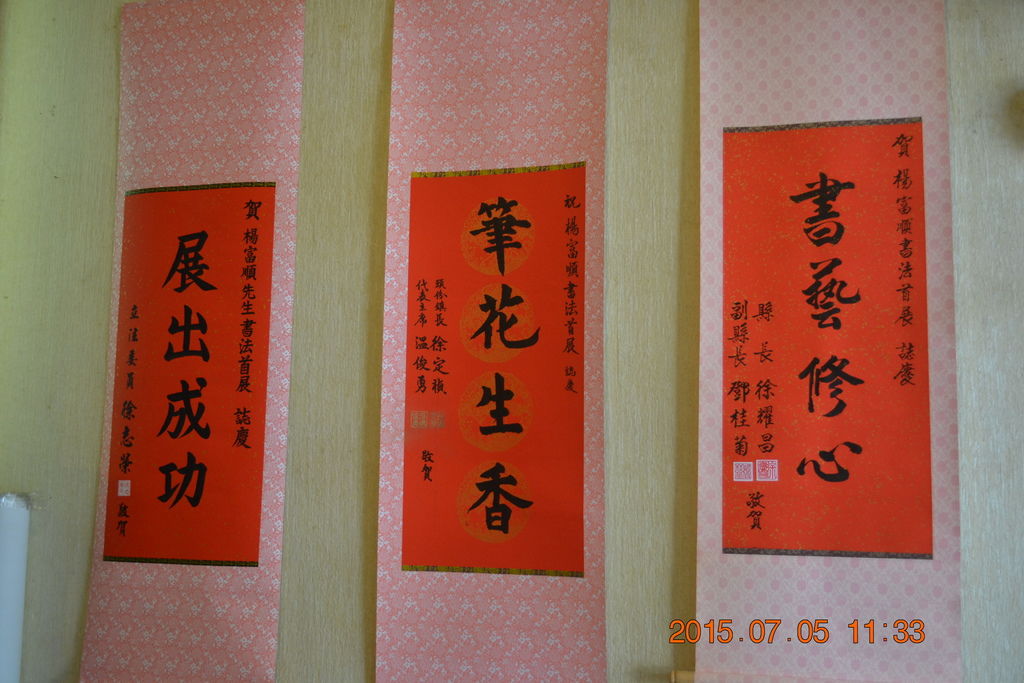 賀 楊富順書法首展 誌慶
書藝修心
縣長 徐耀昌
副縣長 鄧桂菊
敬賀
祝 楊富順書法首展 誌慶
筆花生香
頭份鎮長 徐定禎
代表主席 溫俊勇
敬賀
賀 楊富順先生書法首展 誌慶
展出成功
立法委員 徐志榮 敬賀
2015.07.05 11:33